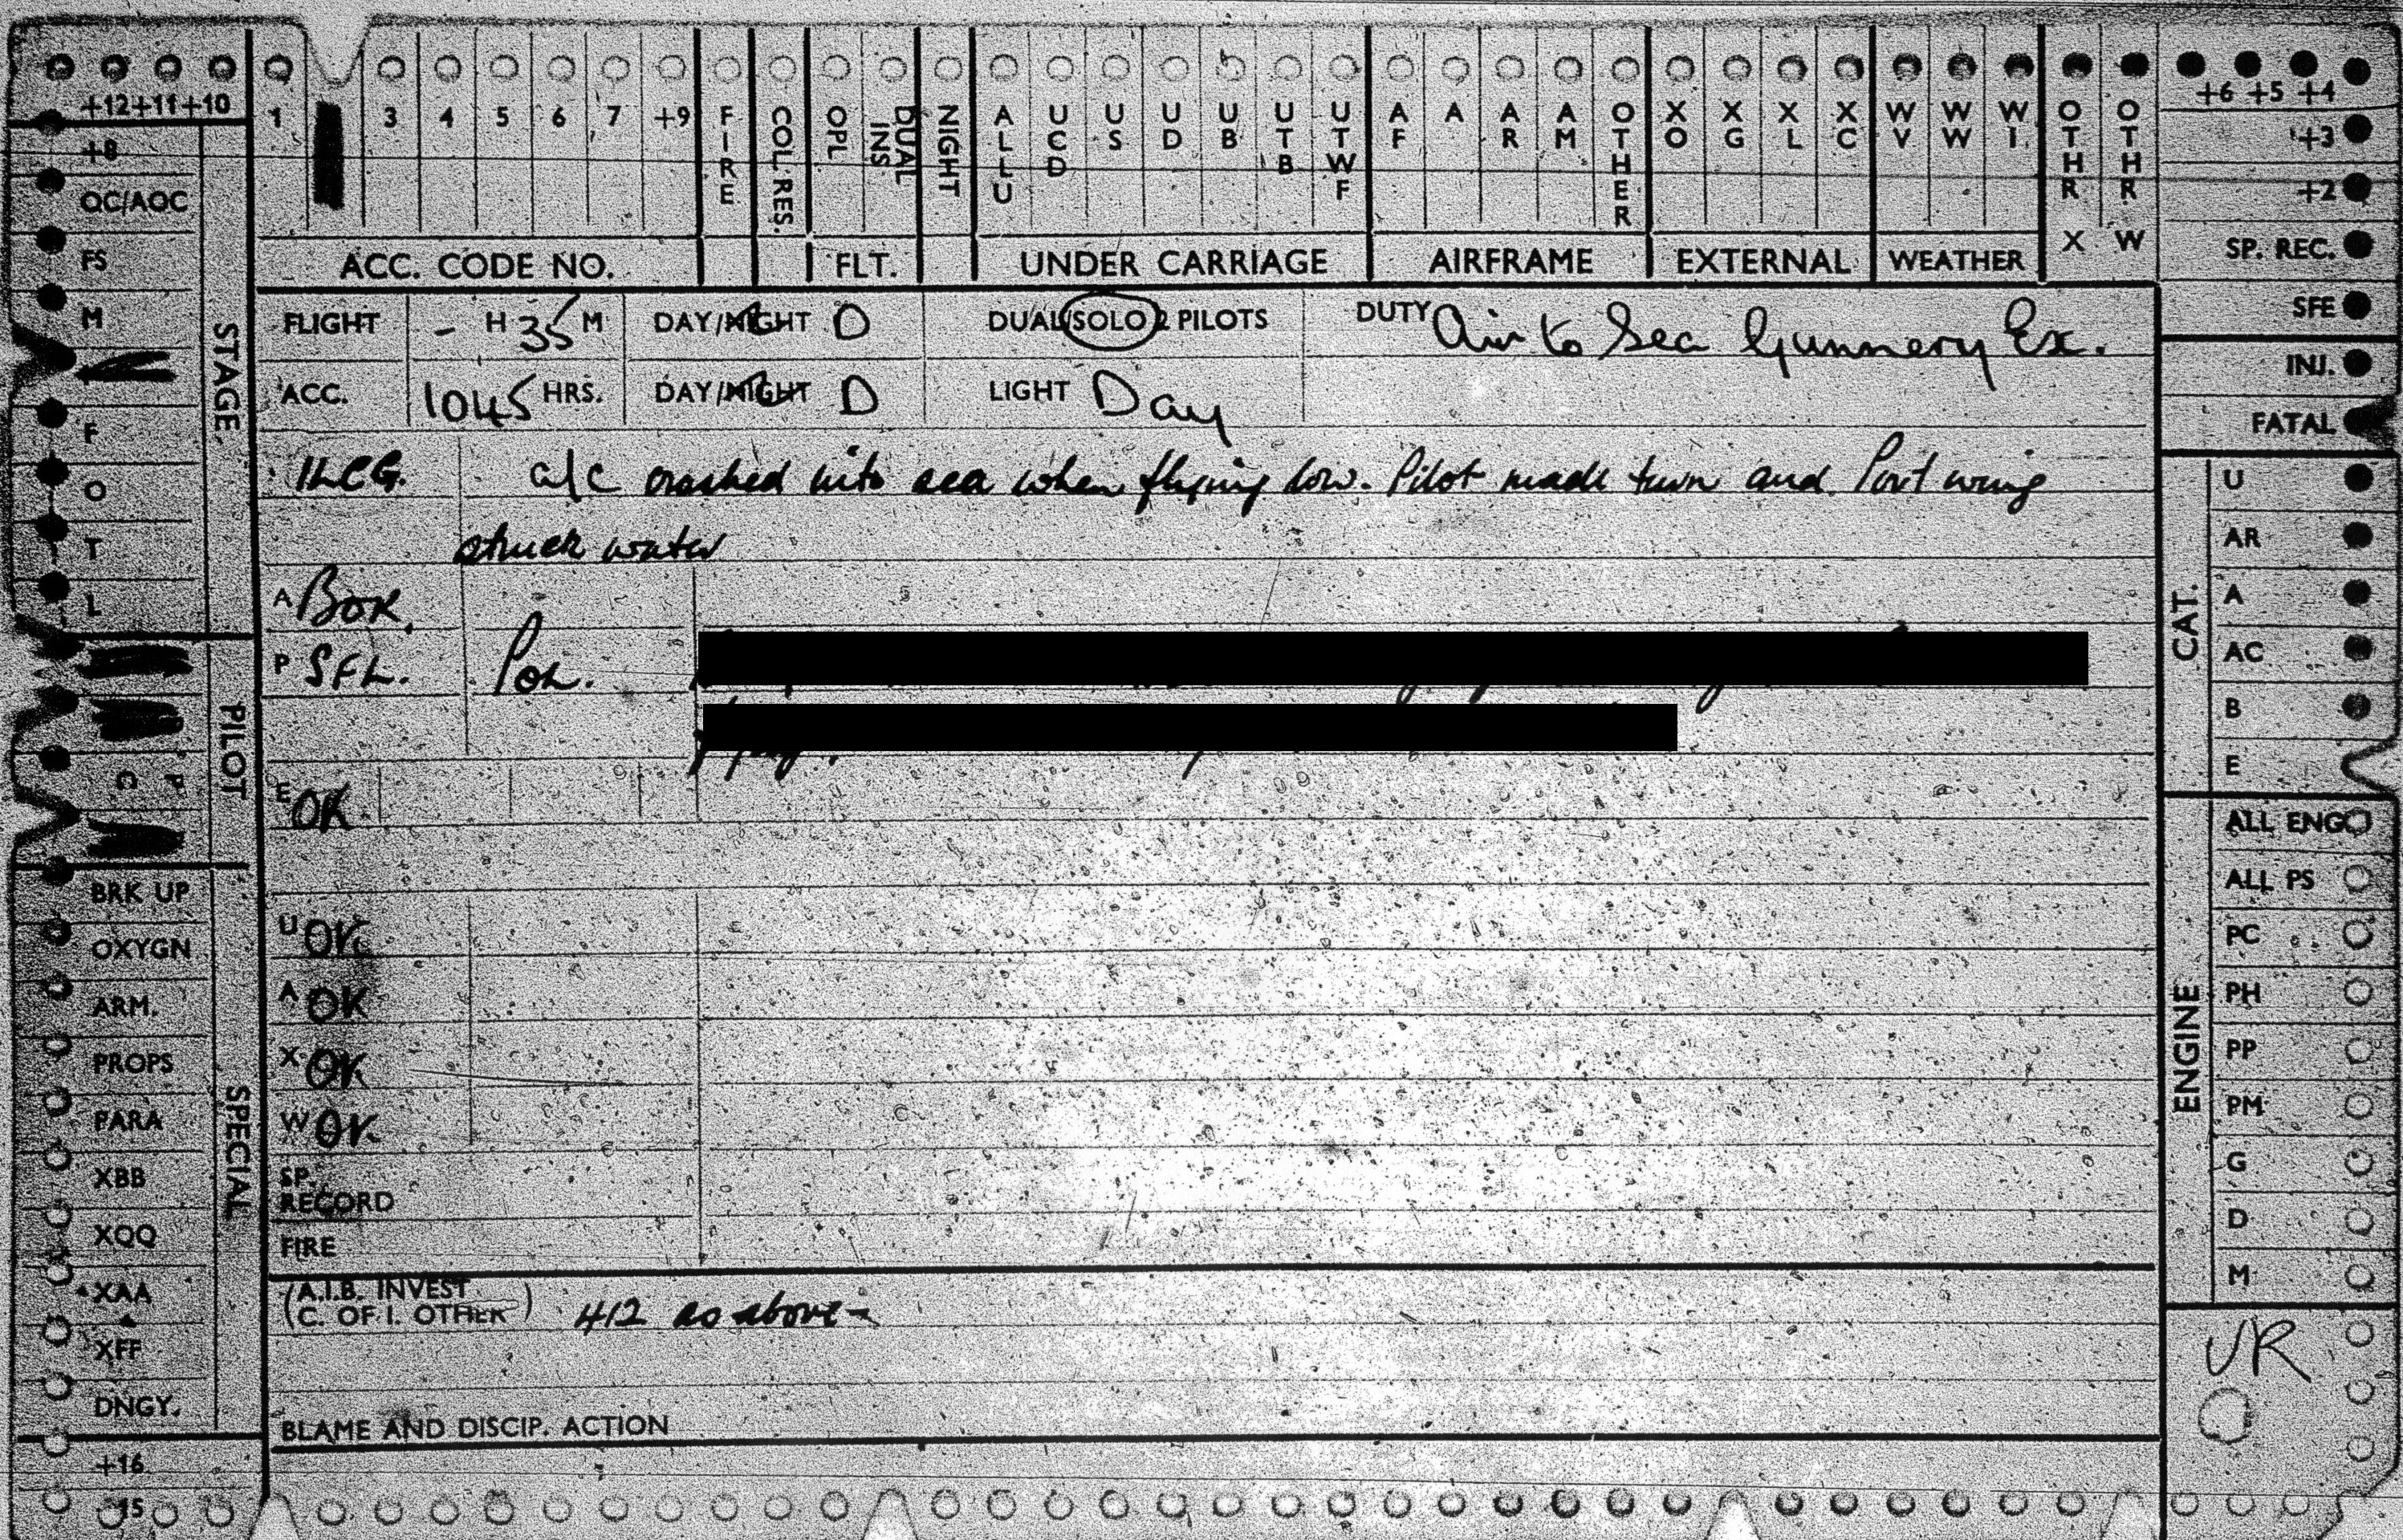 +12 +11 +10 1 3 4 5 6 7 +9 FIRE COL. RES. OPL DUAL INS NIGHT ALLU UCD US UD UB UTB UTWF AF A AR AM OTHER XO XG XL XC WV WW WI OTHR X OTHR W +6 +5 +4
+3
+2
SP. REC.
SFE
INJ.
FATAL
ACC. CODE NO. FLT. UNDER CARRIAGE AIRFRAME EXTERNAL WEATHER
+8
QC/AOC
FS
M
F
O
T
L
STAGE
PILOT
BRK UP
OXYGN
ARM.
PROPS
PARA
XBB
XQQ
XAA
XFF
DNGY.
SPECIAL
+16
15
FLIGHT - H 35 M DAY/NIGHT D DUAL/SOLO 2 PILOTS DUTY Air to Sea Gunnery Ex.
ACC. 1045 HRS. DAY/NIGHT D LIGHT Day
a/c crashed into sea when flying low. Pilot made turn and Port wing
struck water
A BOK
P SFL. Poh.
E OK
U OK
A OK
X OK
W OK
SP. RECORD
FIRE
(A.I.B. INVEST
C. OF I. OTHER) 412 as above
BLAME AND DISCIP. ACTION
CAT.
U
AR
A
AC
B
E
ENGINE
ALL ENG
ALL PS
PC
PH
PP
PM
G
D
M